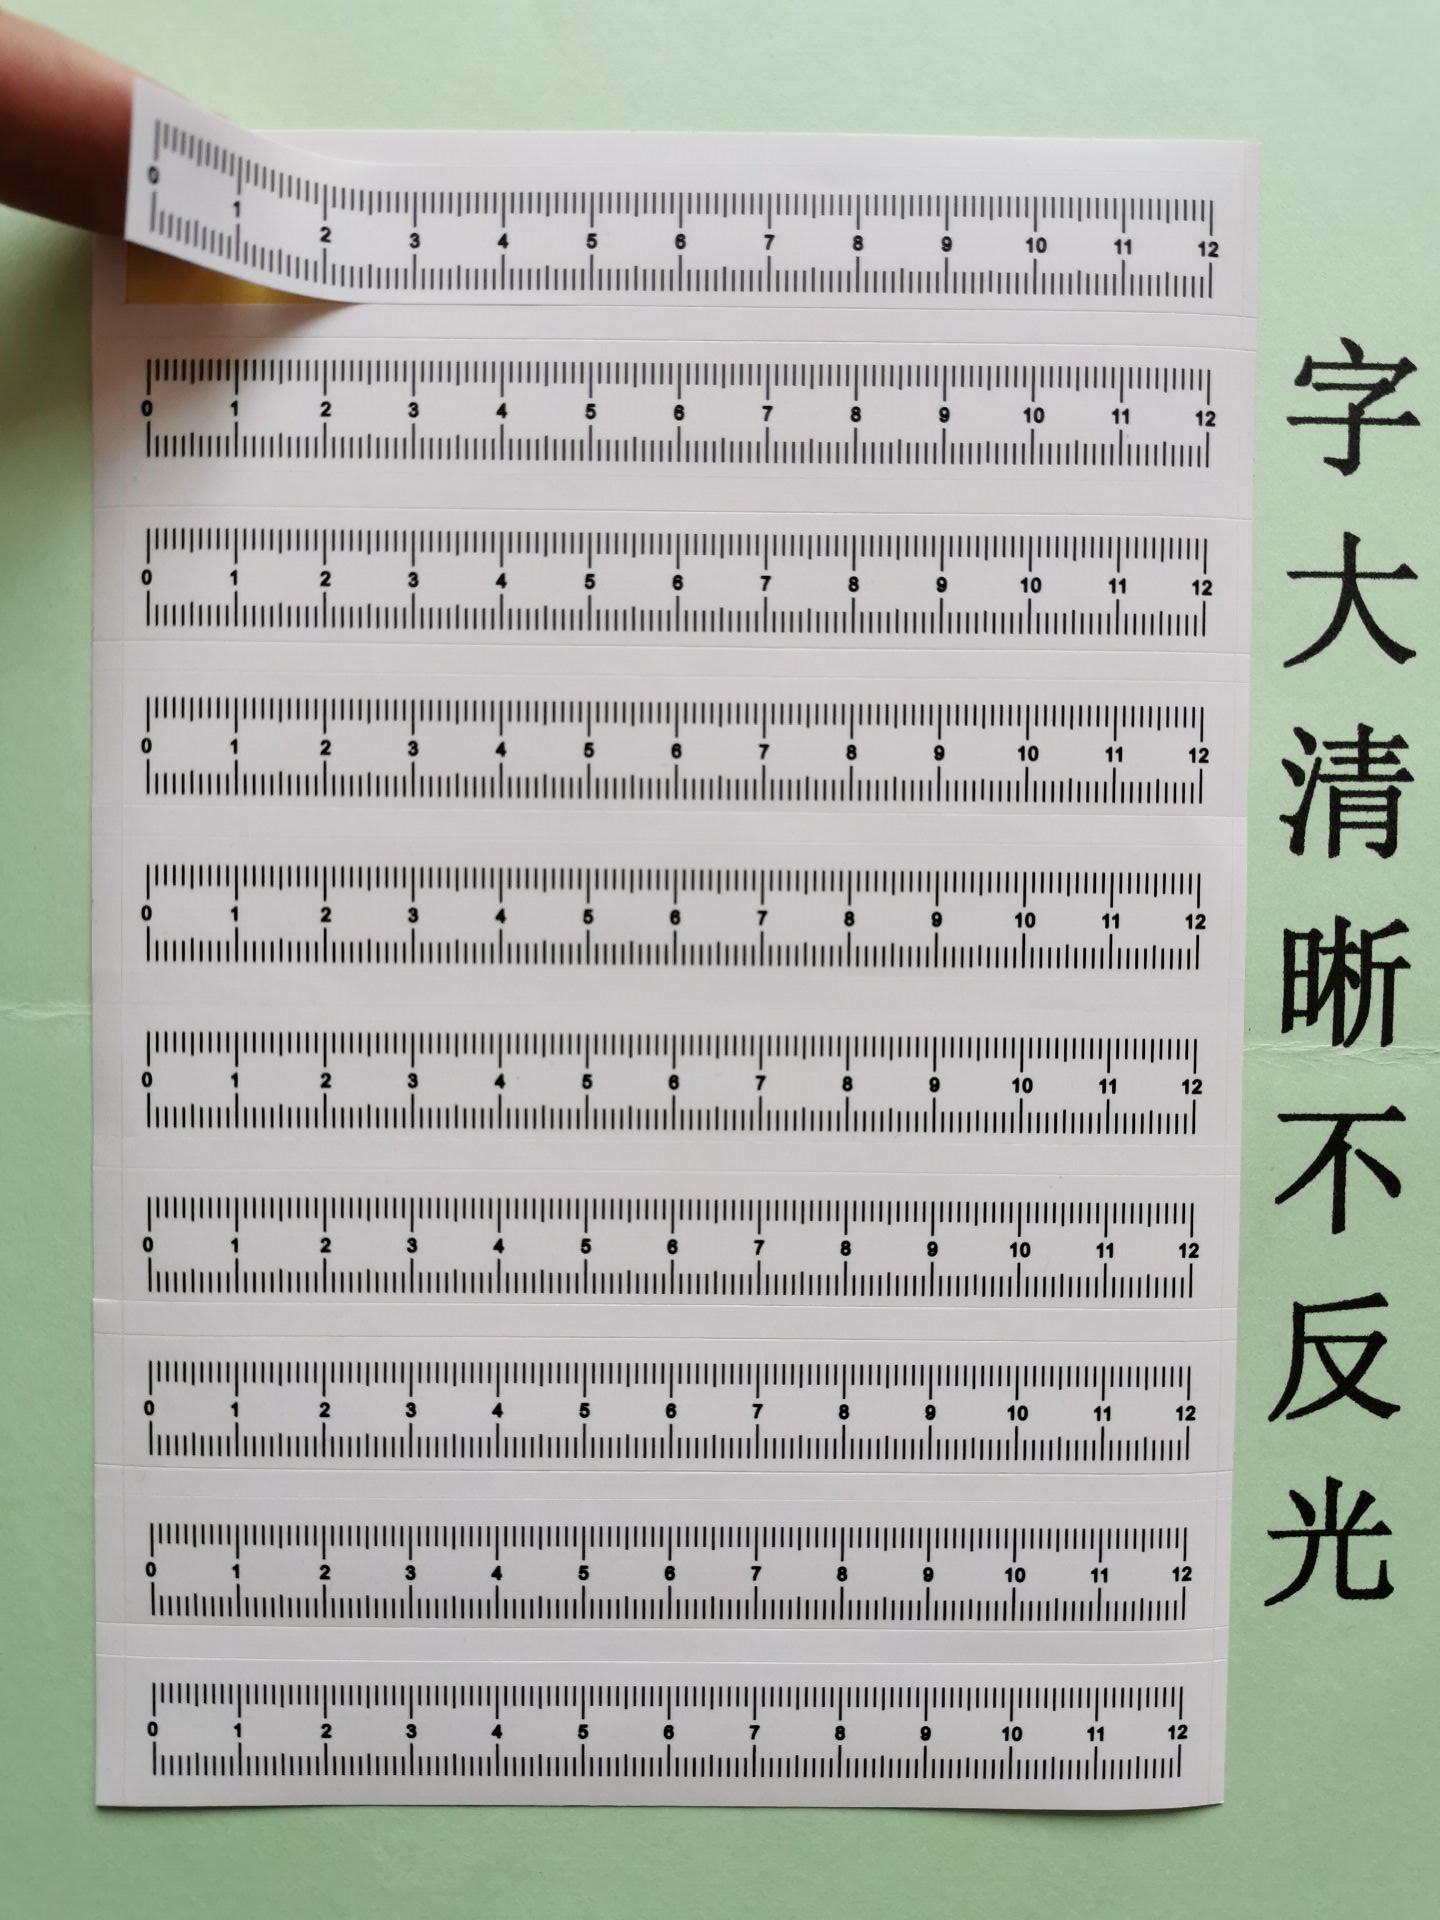 0 1 2 3 4 5 6 7 8 9 10 11 12
0 1 2 3 4 5 6 7 8 9 10 11 12
0 1 2 3 4 5 6 7 8 9 10 11 12
0 1 2 3 4 5 6 7 8 9 10 11 12
0 1 2 3 4 5 6 7 8 9 10 11 12
0 1 2 3 4 5 6 7 8 9 10 11 12
0 1 2 3 4 5 6 7 8 9 10 11 12
0 1 2 3 4 5 6 7 8 9 10 11 12
0 1 2 3 4 5 6 7 8 9 10 11 12
0 1 2 3 4 5 6 7 8 9 10 11 12
字大清晰不反光